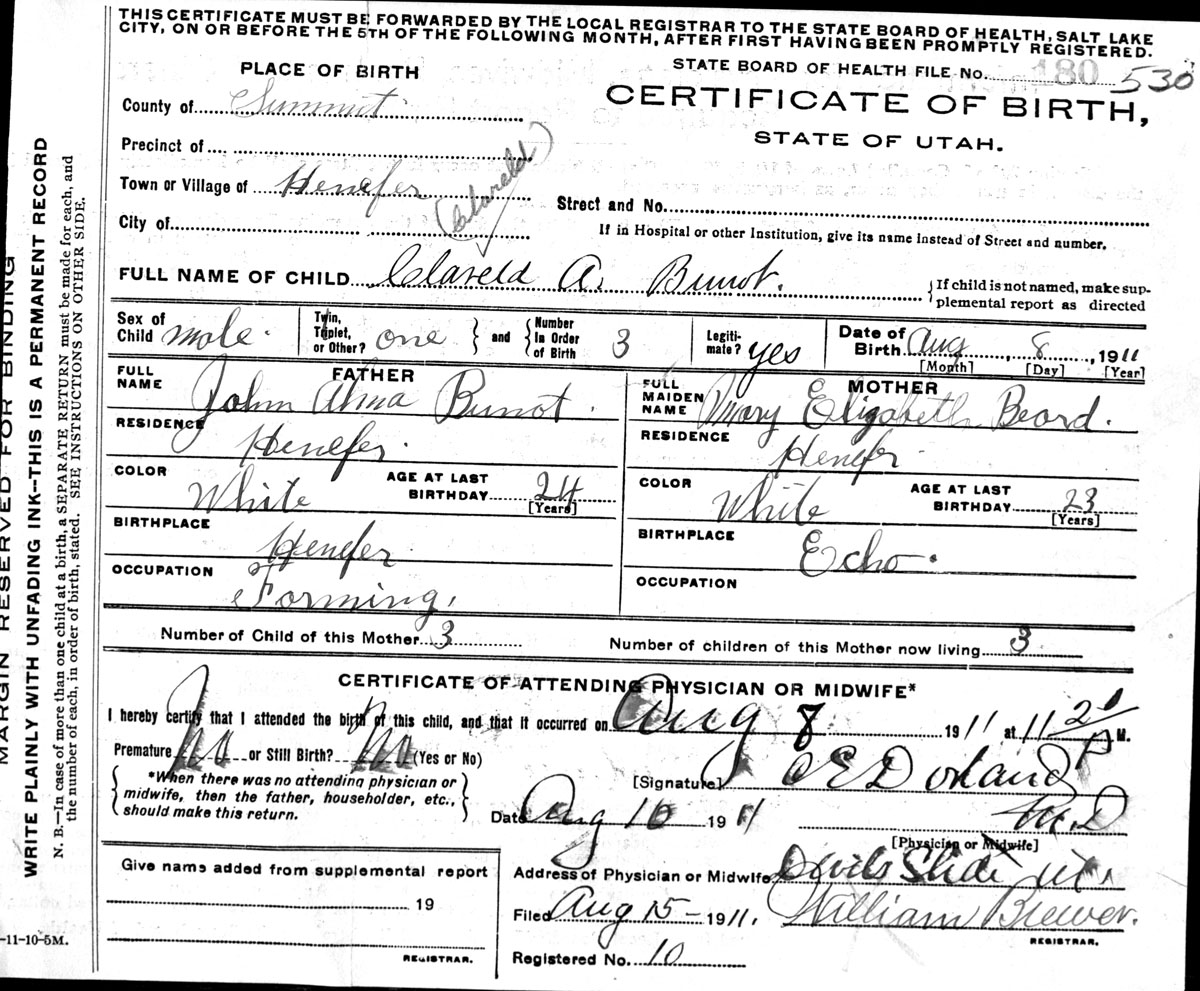 THIS CERTIFICATE MUST BE FORWARDED BY THE LOCAL REGISTRAR TO THE STATE BOARD OF HEALTH, SALT LAKE
CITY, ON OR BEFORE THE 5TH OF THE FOLLOWING MONTH, AFTER FIRST HAVING BEEN PROMPTLY REGISTERED.
PLACE OF BIRTH
STATE BOARD OF HEALTH FILE No. 180 530
CERTIFICATE OF BIRTH,
STATE OF UTAH.
County of Summit
Precinct of
Town or Village of Henefer
(Clareld)
City of
Street and No.
If in Hospital or other Institution, give its name instead of Street and number.
FULL NAME OF CHILD Clareld A. Bunot.
{If child is not named, make sup-
plemental report as directed
Sex of Child male.
Twin, Triplet, or Other? one } and { Number In Order of Birth 3
Legiti-mate? yes
Date of Birth Aug, 8, 1911
[Month] [Day] [Year]
FATHER
FULL NAME John Alma Bunot.
RESIDENCE Henefer.
COLOR White AGE AT LAST BIRTHDAY 24 [Years]
BIRTHPLACE Henefer.
OCCUPATION Forming.
MOTHER
FULL MAIDEN NAME Mary Elizabeth Beard.
RESIDENCE Henefer.
COLOR White AGE AT LAST BIRTHDAY 23 [Years]
BIRTHPLACE Echo.
OCCUPATION
Number of Child of this Mother 3 Number of children of this Mother now living 3
CERTIFICATE OF ATTENDING PHYSICIAN OR MIDWIFE*
I hereby certify that I attended the birth of this child, and that it occurred on Aug 8 1911 at 11 20 P M.
Premature No or Still Birth? No (Yes or No)
{*When there was no attending physician or
midwife, then the father, householder, etc.,
should make this return.}
[Signature] M.D
[Physician or Midwife]
Date Aug 10 1911
Address of Physician or Midwife Devils Slide Ut.
Filed Aug 15 - 1911. William Brewer.
REGISTRAR.
Registered No. 10
Give name added from supplemental report
19
REGISTRAR.
-11-10-5M.
MARGIN RESERVED FOR BINDING
WRITE PLAINLY WITH UNFADING INK--THIS IS A PERMANENT RECORD
N. B.—In case of more than one child at a birth, a SEPARATE RETURN must be made for each, and
the number of each, in order of birth, stated. SEE INSTRUCTIONS ON OTHER SIDE.